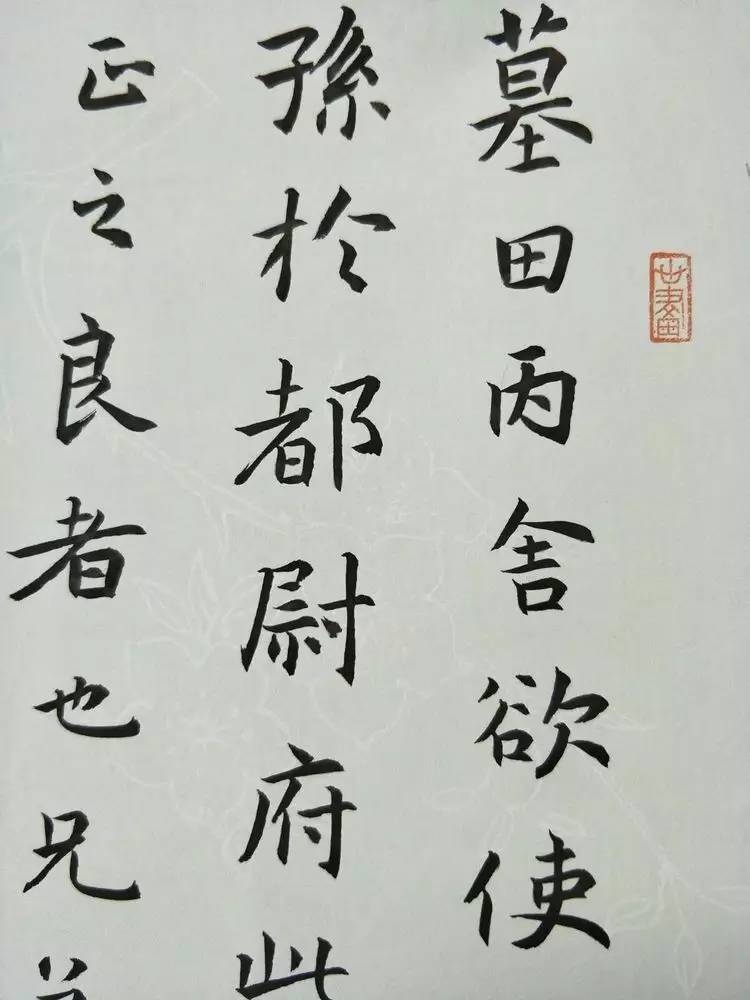 墓田丙舍欲使
孫於都尉府此
正之良者也兄